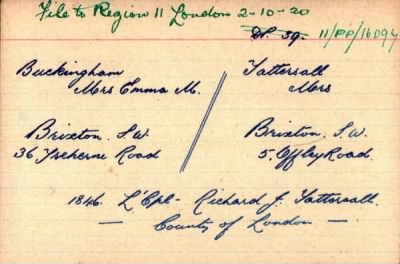 File to Region 11 London 2-10-20
D.P. 39. 11/PP/16094
Buckingham / Tattersall
Mrs Emma M. Mrs
Brixton. S.W. Brixton. S.W.
36, Road 5, Offley Road.
1846. L'Cpl- Richard J. Tattersall.
— County of London —